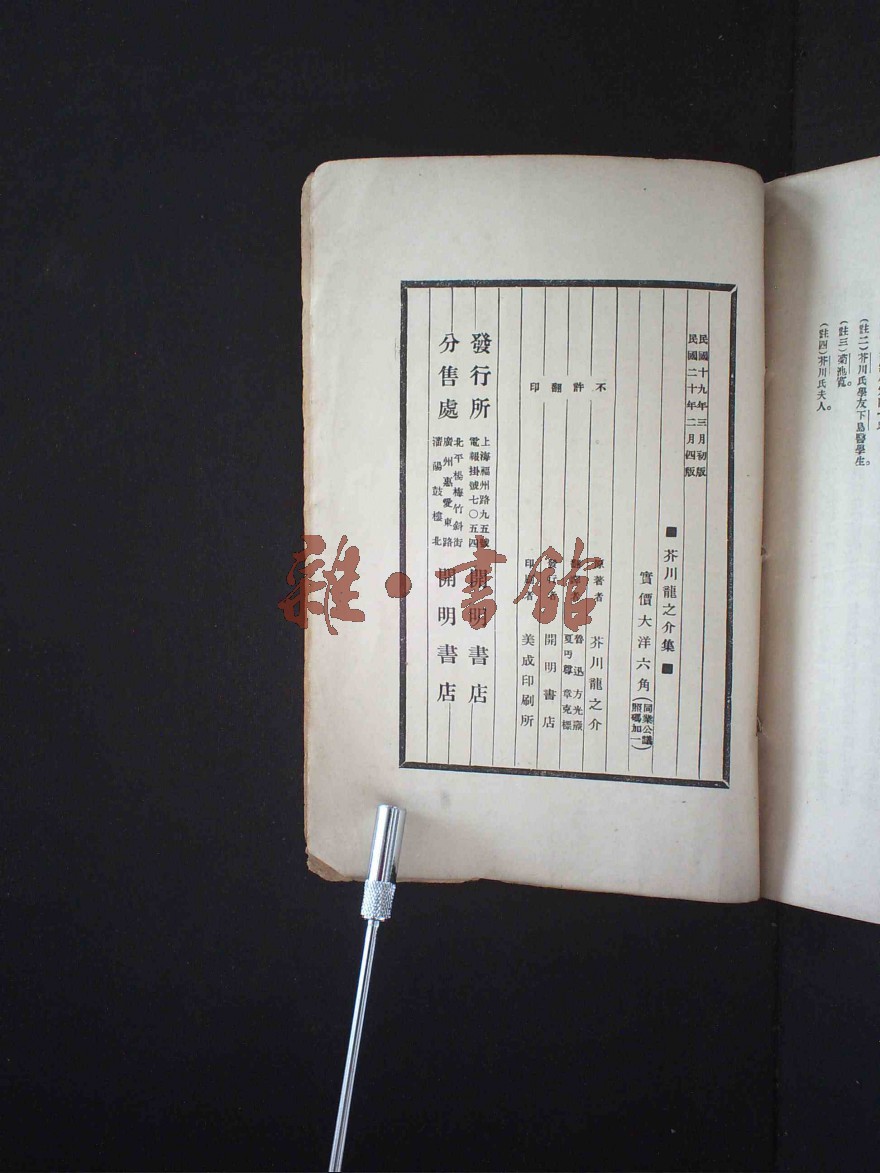 (註二)芥川氏學友下島醫學生。
(註三)菊池寬。
(註四)芥川氏夫人。
民國十九年三月初版
民國二十年二月四版
■芥川龍之介集■
實價大洋六角(同業公議照碼加一)
不許翻印
原著者 芥川龍之介
魯迅 方光燾
夏丏尊 章克標
發行者 開明書店
印刷者 美成印刷所
發行所 上海福州路九五號 電報掛號七〇五四 開明書店
分售處 北平楊梅竹斜街 廣州惠愛東路 瀋陽鼓樓北 開明書店
雜·書館